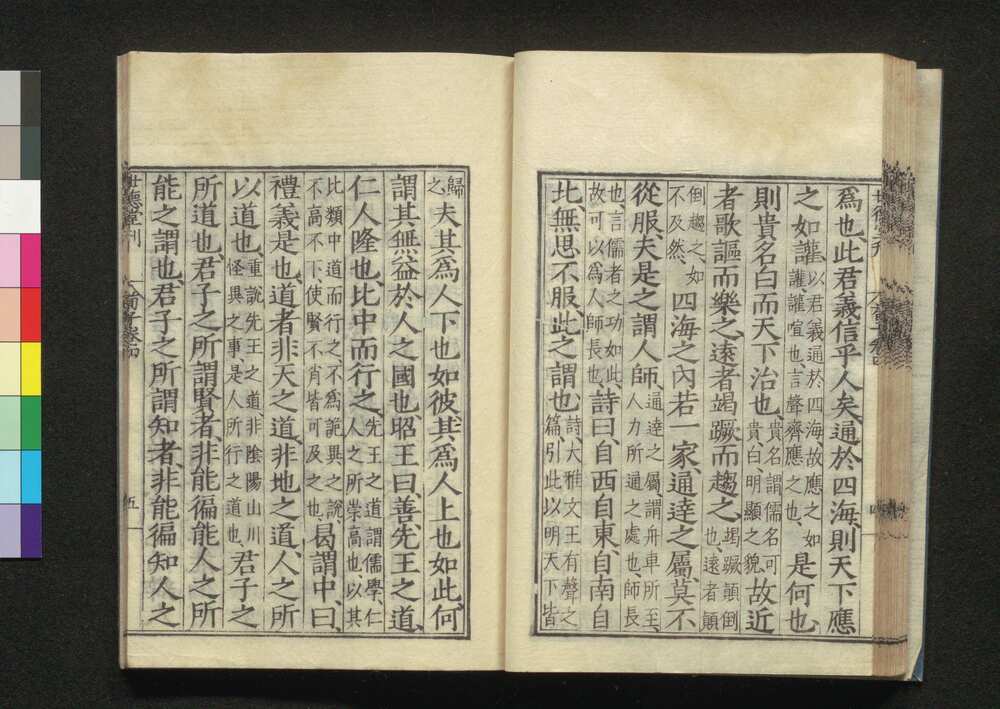 爲也、此君義信乎人矣、通於四海、則天下應
之如讙、以君義通於四海、故應之、如
讙讙喧也、言聲齊應之也、是何也
則貴名白而天下治也、貴名謂儒名可
貴白、明顯之貌故近
者歌謳而樂之、遠者竭蹶而趨之、竭蹶顛倒
也、遠者顛
倒趨之、如
不及然、四海之內若一家、通達之屬、莫不
從服、夫是之謂人師、通達之屬、謂舟車所至、
人力所通之處也、師長
也、言儒者之功如此、
故可以爲人師長也、詩曰、自西自東、自南自
北、無思不服、此之謂也、詩、大雅文王有聲之
篇、引此以明天下皆
四
歸
之夫其爲人下也如彼、其爲人上也如此、何
謂其無益於人之國也、昭王曰、善、先王之道、
仁人隆也、比中而行之、先王之道謂儒學、仁
人之所崇高也、以其
比類中道而行之、不爲詭異之說、
不高不下、使賢不肖皆可及之也、曷謂中、曰、
禮義是也、道者、非天之道、非地之道、人之所
以道也、重說先王之道、非陰陽山川
怪異之事、是人所行之道也、君子之
所道也、君子之所謂賢者、非能徧能人之所
能之謂也、君子之所謂知者、非能徧知人之
世德堂刊
荀子卷四
五